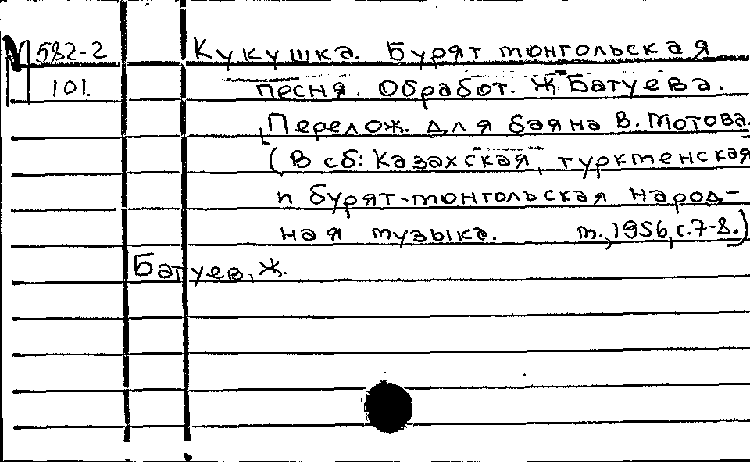 М 582-2 Кукушка. Бурят монгольская
101. песня. Обработ. Ж Батуева.
Перелож. для баяна В. Мотова.
(В сб: Казахская, туркменская
и бурят-монгольская народ-
ная музыка. М., 1956, с. 7-8.)
Батуев, Ж.